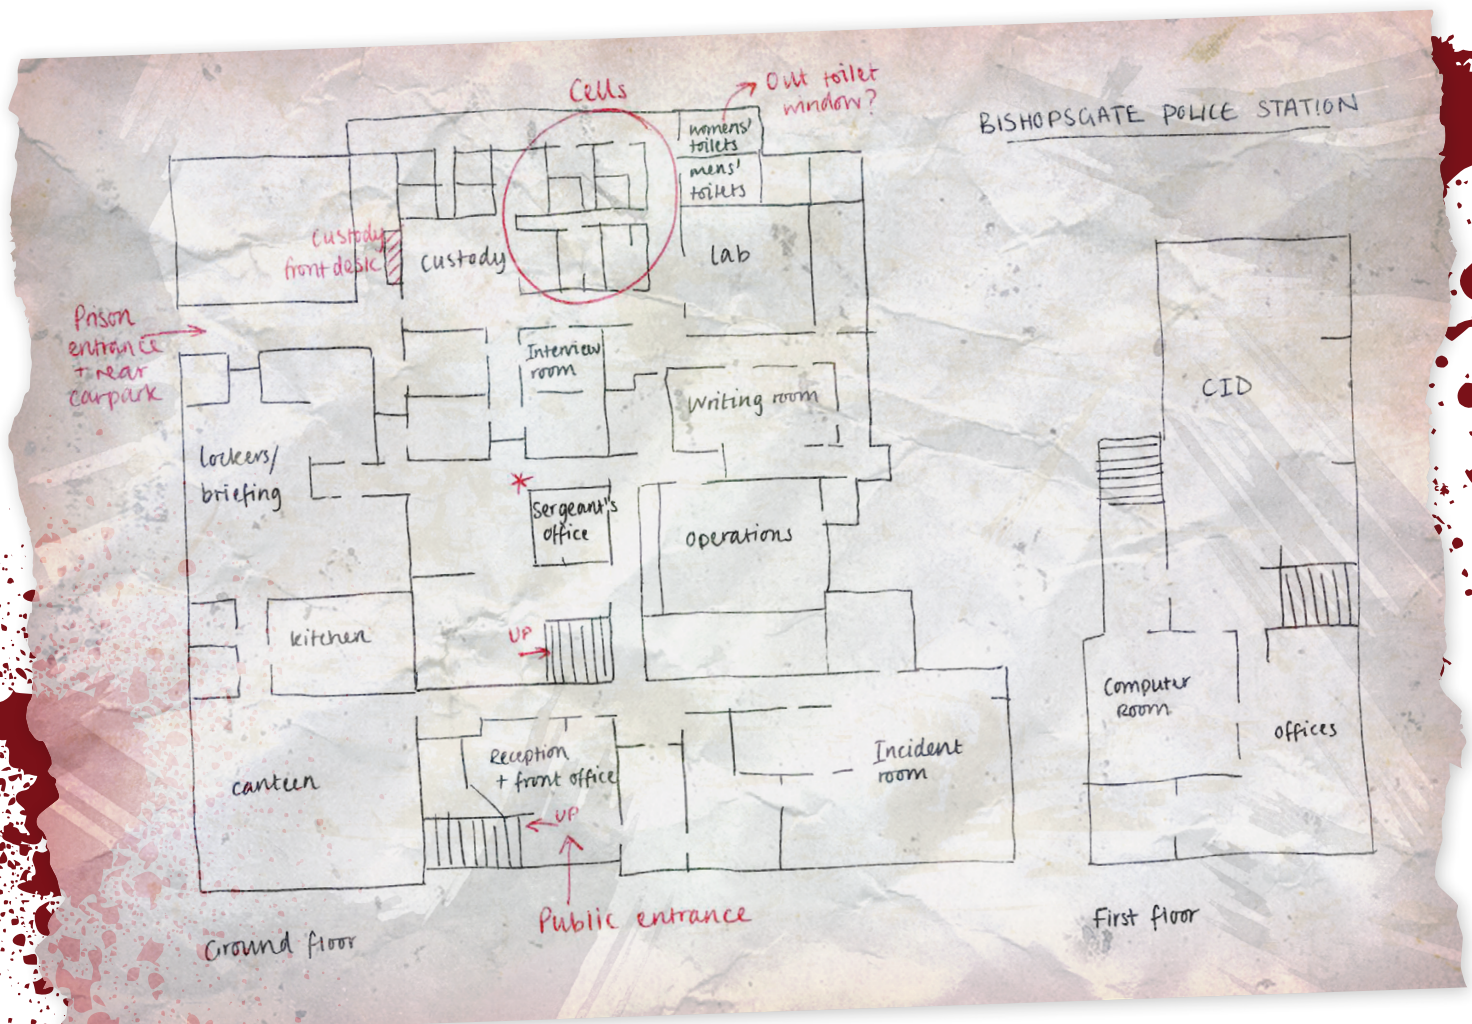 Cells
Out toilet
window?
BISHOPSGATE POLICE STATION
womens'
toilets
mens'
toilets
Custody
front desk
Custody
Lab
Prison
entrance
+ rear
carpark
Interview
room
Writing room
CID
Lockers/
briefing
*
Sergeant's
office
Operations
Kitchen
UP
Computer
Room
offices
Reception
+ front office
Incident
room
Canteen
UP
Public entrance
Ground floor
First floor